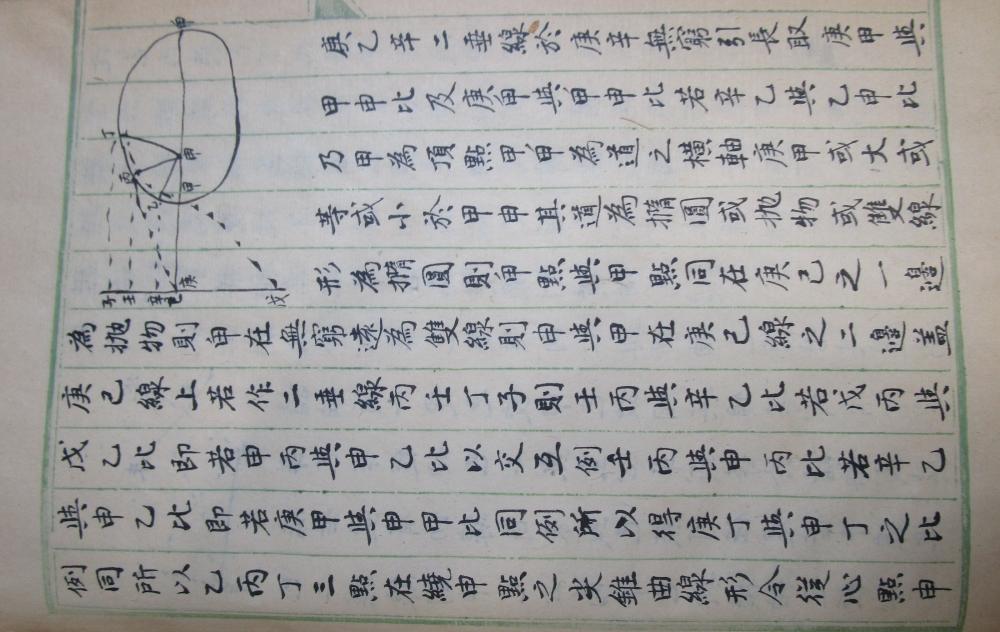 庚乙辛二垂線於庚辛無窮引長取庚甲與
甲申比及庚呷與呷申比若辛乙與乙申比
乃甲為頂點甲呷為道之橫軸庚甲或大或
等或小於甲申其道為撱圓或拋物或雙線
形為撱圓則呷點與甲點同在庚己之一邊
為拋物則呷在無窮遠為雙線則呷與甲在庚己線之二邊蓋
庚己線上若作二垂線丙壬丁子則壬丙與辛乙比若戊丙與
戊乙比即若申丙與申乙比以交互例壬丙與申丙比若辛乙
與申乙比即若庚甲與申甲比同例所以得庚丁與申丁之比
例同所以乙丙丁三點在繞申點之尖錐曲線形令從心點申
呷
丁
申
丙
甲
庚
子壬辛己
戊